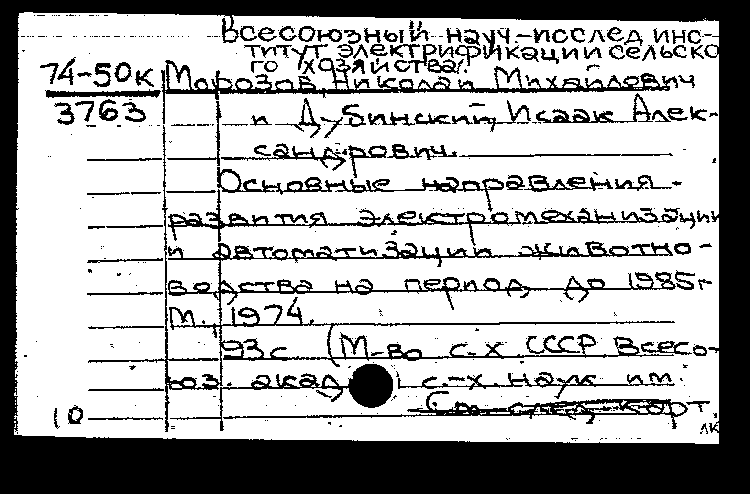 Всесоюзный науч.-исслед инс-
титут электрификации сельско
го хозяйства.
74-50к Морозов, Николай Михайлович
3763 и Дубинский, Исаак Алек-
сандрович.
Основные направления
развития электромеханизации
и автоматизации животно-
водства на период до 1985г
М., 1974.
93с (М-во с.-х СССР Всесо-
юз. акад. с.-х. наук им.
10 См след карт.
лк